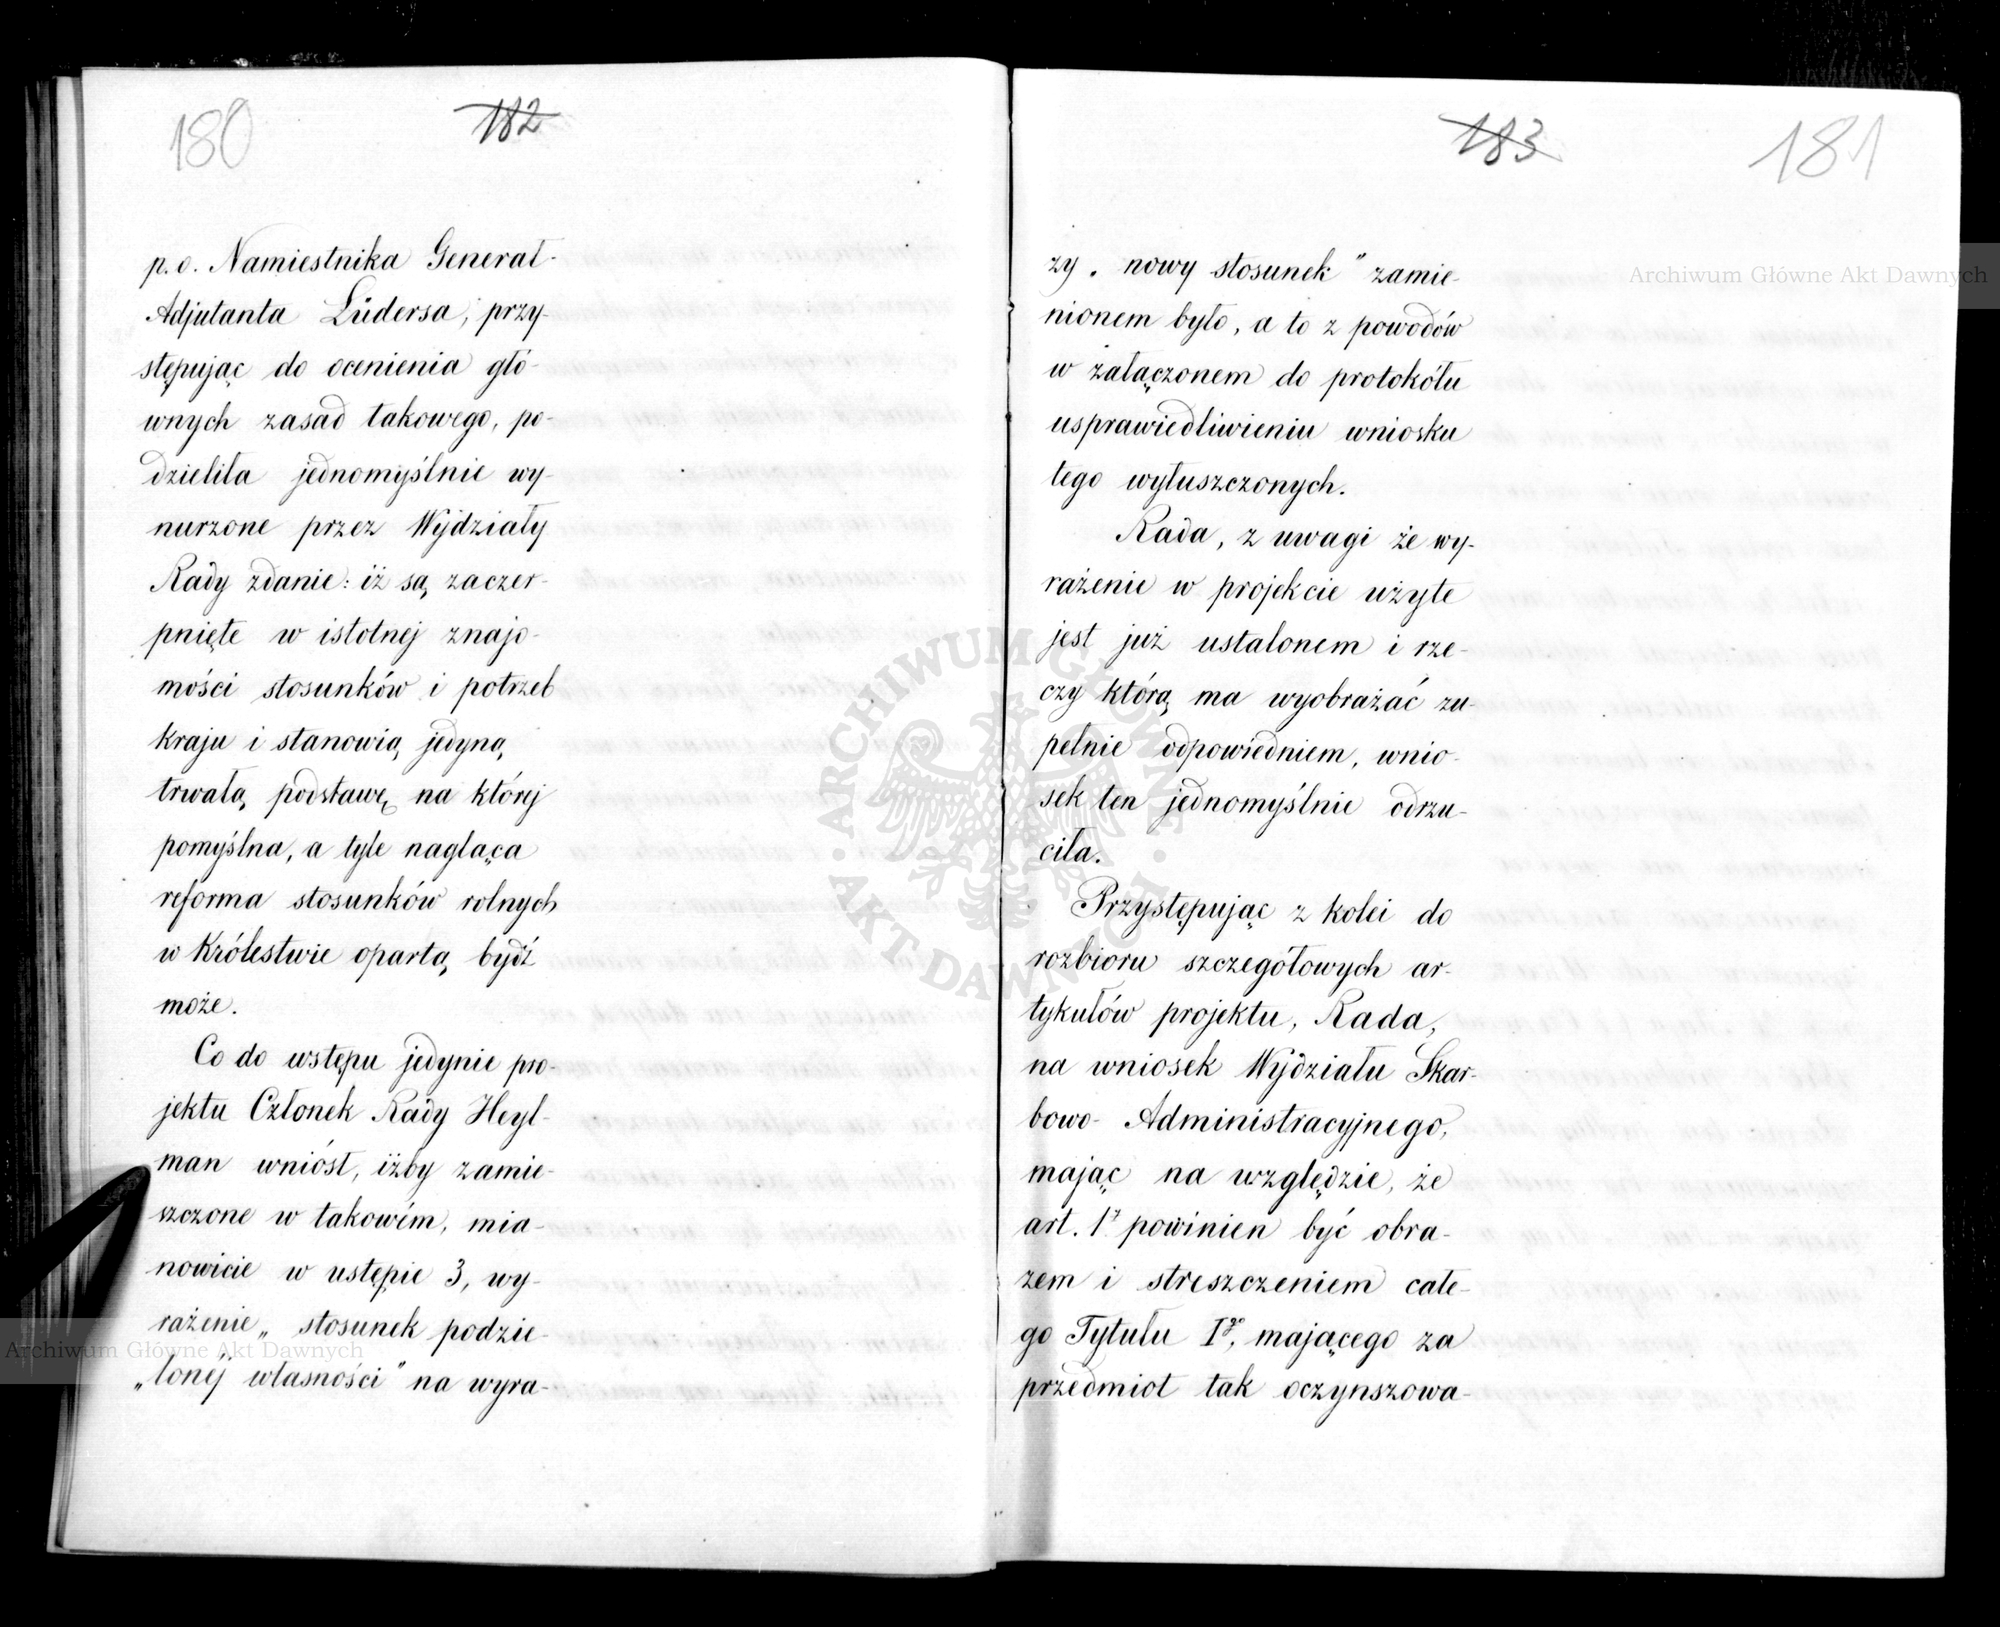 180
182
p. o. Namiestnika Generał-
Adjutanta Lüdersa, przy-
stępując do ocenienia głó-
wnych zasad takowego, po-
dzieliła jednomyślnie wy-
nurzone przez Wydziały
Rady zdanie: iż są zaczer-
pnięte w istotnej znajo-
mości stosunków i potrzeb
kraju i stanowią jedyną
trwałą podstawę na której
pomyślna, a tyle nagląca
reforma stosunków rolnych
w Królestwie opartą bydź
może.
Co do wstępu jedynie pro-
jektu Członek Rady Heyl-
man wniósł, iżby zamie-
szczone w takowém, mia-
nowicie w ustępie 3, wy-
rażenie „ stosunek podzie-
„lonéj własności” na wyra-
183
181
ży „ nowy stosunek” zamie-
nionem było, a to z powodów
w załączonem do protokółu
usprawiedliwieniu wniosku
tego wyłuszczonych.
Rada, z uwagi że wy-
rażenie w projekcie użyte
jest już ustalonem i rze-
czy którą ma wyobrażać zu-
pełnie odpowiedniem, wnio-
sek ten jednomyślnie odrzu-
ciła.
Przystępując z kolei do
rozbioru szczegółowych ar-
tykułów projektu, Rada,
na wniosek Wydziału Skar-
bowo-Administracyjnego,
mając na względzie, że
art. 1y powinien być obra-
zem i streszczeniem całe-
go Tytułu Igo, mającego za
przedmiot tak oczynszowa-
ARCHIWUM GŁÓWNE AKT DAWNYCH
Archiwum Główne Akt Dawnych
Archiwum Główne Akt Dawnych